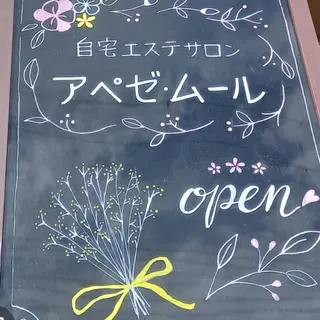 自宅エステサロン
アペゼ・ムール
open